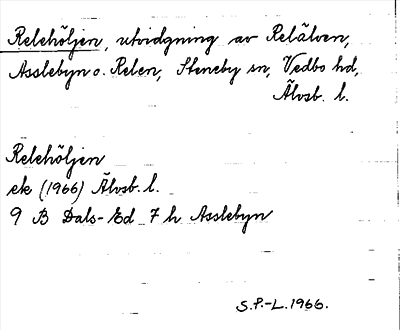 Relehöljen, utvidgning av Relälven,
Asslebyn o. Relen, Steneby sn, Vedbo hd,
Älvsb. l.
Relehöljen
ek (1966) Älvsb. l.
9 B Dals-Ed 7 h Asslebyn
S.P.-L. 1966.